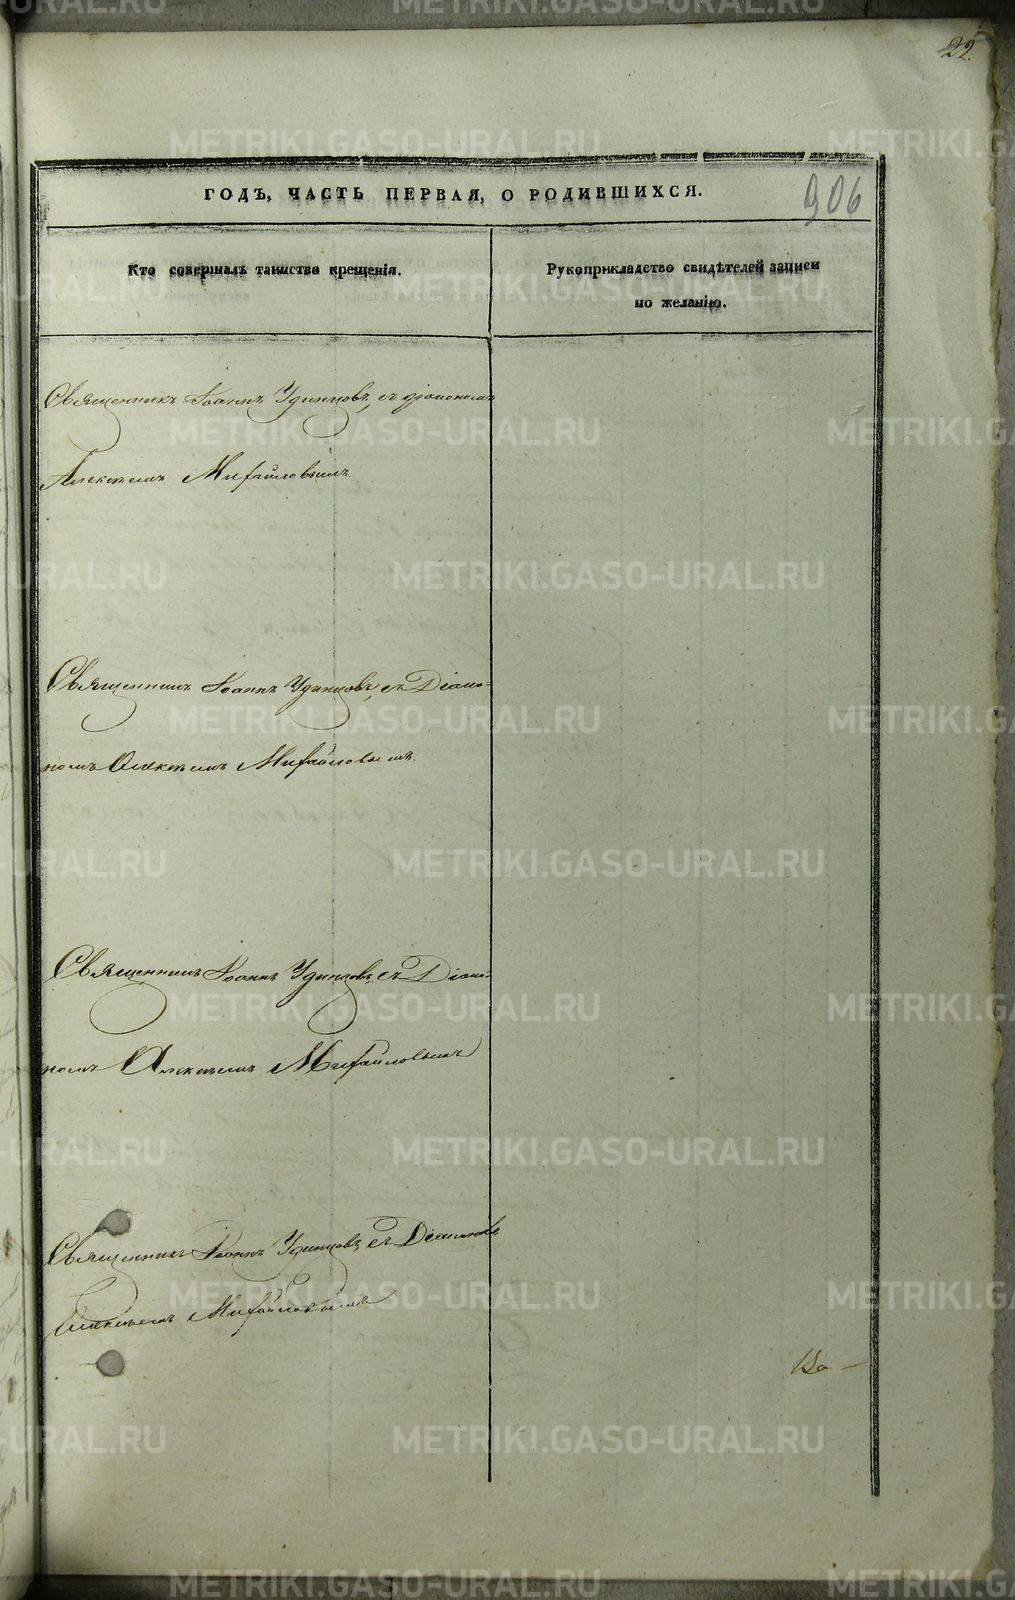 22.
906
ГОДЪ, ЧАСТЬ ПЕРВАЯ, О РОДИВШИХСЯ.
Кто совершалъ таинство крещенія.
Рукоприкладство свидѣтелей записи
по желанію.
Священникъ Іоаннъ Удинцовъ, съ діакономъ
Алексѣемъ Михайловымъ.
Священникъ Іоаннъ Удинцовъ, съ Діако-
номъ Алексѣемъ Михайловымъ.
Священникъ Іоаннъ Удинцовъ, съ Діако-
номъ Алексѣемъ Михайловымъ
Священникъ Іоаннъ Удинцовъ, съ Діакономъ
Алексѣемъ Михайловымъ
METRIKI.GASO-URAL.RU